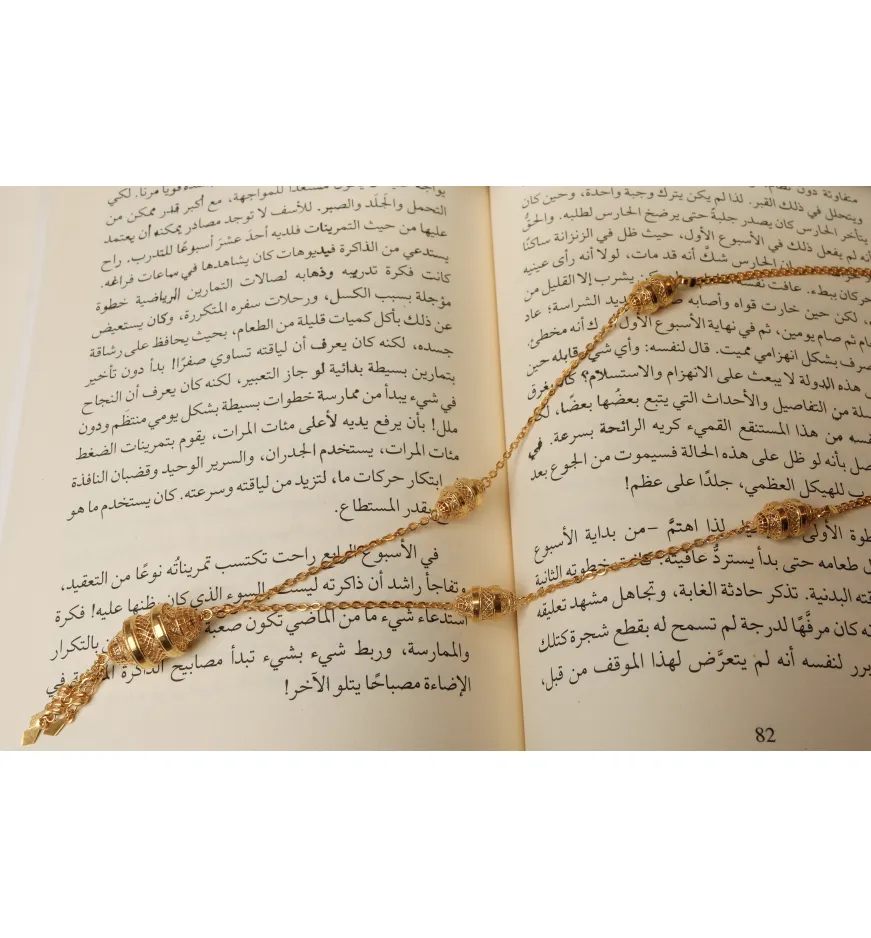 متفاوتة دون نظام.
ويتحلل في ذلك القبر. لذا لم يكن يترك وجبة واحدة، وحين كان
يتأخر الحارس كان يصدر جلبةً حتى يرضخ الحارس لطلبه. والحقُّ
أنه لم يفعل ذلك في الأسبوع الأول، حيث ظل في الزنزانة ساكنًا
الحارس شكَّ أنه قد مات، لولا أنه رأى عينيه
كان ببطء. عافت نفسه يشرب إلا القليل من
لكن حين خارت قواه وأصابه الشراسة؛ عاد
ثم صام يومين، ثم في نهاية الأسبوع الأول أنه مخطئ،
بشكل انهزامي مميت. قال لنفسه: وأي شيء قابله حين
هذه الدولة لا يبعث على الانهزام والاستسلام؟
من التفاصيل والأحداث التي يتبع بعضُها بعضًا،
من هذا المستنقع القميء كريه الرائحة بسرعة. في
بأنه لو ظل على هذه الحالة فسيموت من الجوع بعد
للهيكل العظمي، جلدًا على عظم!
الأولى لذا اهتمَّ –من بداية الأسبوع
طعامه حتى بدأ يستردُّ عافيته. خطوته الثانية
البدنية. تذكر حادثة الغابة، وتجاهل مشهد تعليقه
كان مرفَّهًا لدرجة لم تسمح له بقطع شجرة كتلك
لنفسه أنه لم يتعرَّض لهذا الموقف من قبل،
82
للمواجهة، مع أكبر قدر ممكن من
التحمل والجلَد والصبر. للأسف لا توجد مصادر يمكنه أن يعتمد
عليها من حيث التمرينات فلديه أحدَ عشرَ أسبوعًا للتدرب. راح
يستدعي من الذاكرة فيديوهات كان يشاهدها في ساعات فراغه.
كانت فكرة تدريبه وذهابه لصالات التمارين الرياضية خطوة
مؤجلة بسبب الكسل، ورحلات سفره المتكررة، وكان يستعيض
عن ذلك بأكل كميات قليلة من الطعام، بحيث يحافظ على رشاقة
جسده، لكنه كان يعرف أن لياقته تساوي صفرًا! بدأ دون تأخير
بتمارين بسيطة بدائية لو جاز التعبير، لكنه كان يعرف أن النجاح
في شيء يبدأ من ممارسة خطوات بسيطة بشكل يومي منتظَم ودون
ملل! بأن يرفع يديه لأعلى مئات المرات، يقوم بتمرينات الضغط
مئات المرات، يستخدم الجدران، والسرير الوحيد وقضبان النافذة
ابتكار حركات ما، لتزيد من لياقته وسرعته. كان يستخدم ما هو
بقدر المستطاع.
في الأسبوع الرابع راحت تكتسب تمريناتُه نوعًا من التعقيد،
وتفاجأ راشد أن ذاكرته ليست السوء الذي كان يظنها عليه! فكرة
استدعاء شيء ما من الماضي تكون صعبة بالتكرار
والممارسة، وربط شيء بشيء تبدأ مصابيح الذاكرة في
الإضاءة مصباحًا يتلو الآخر!